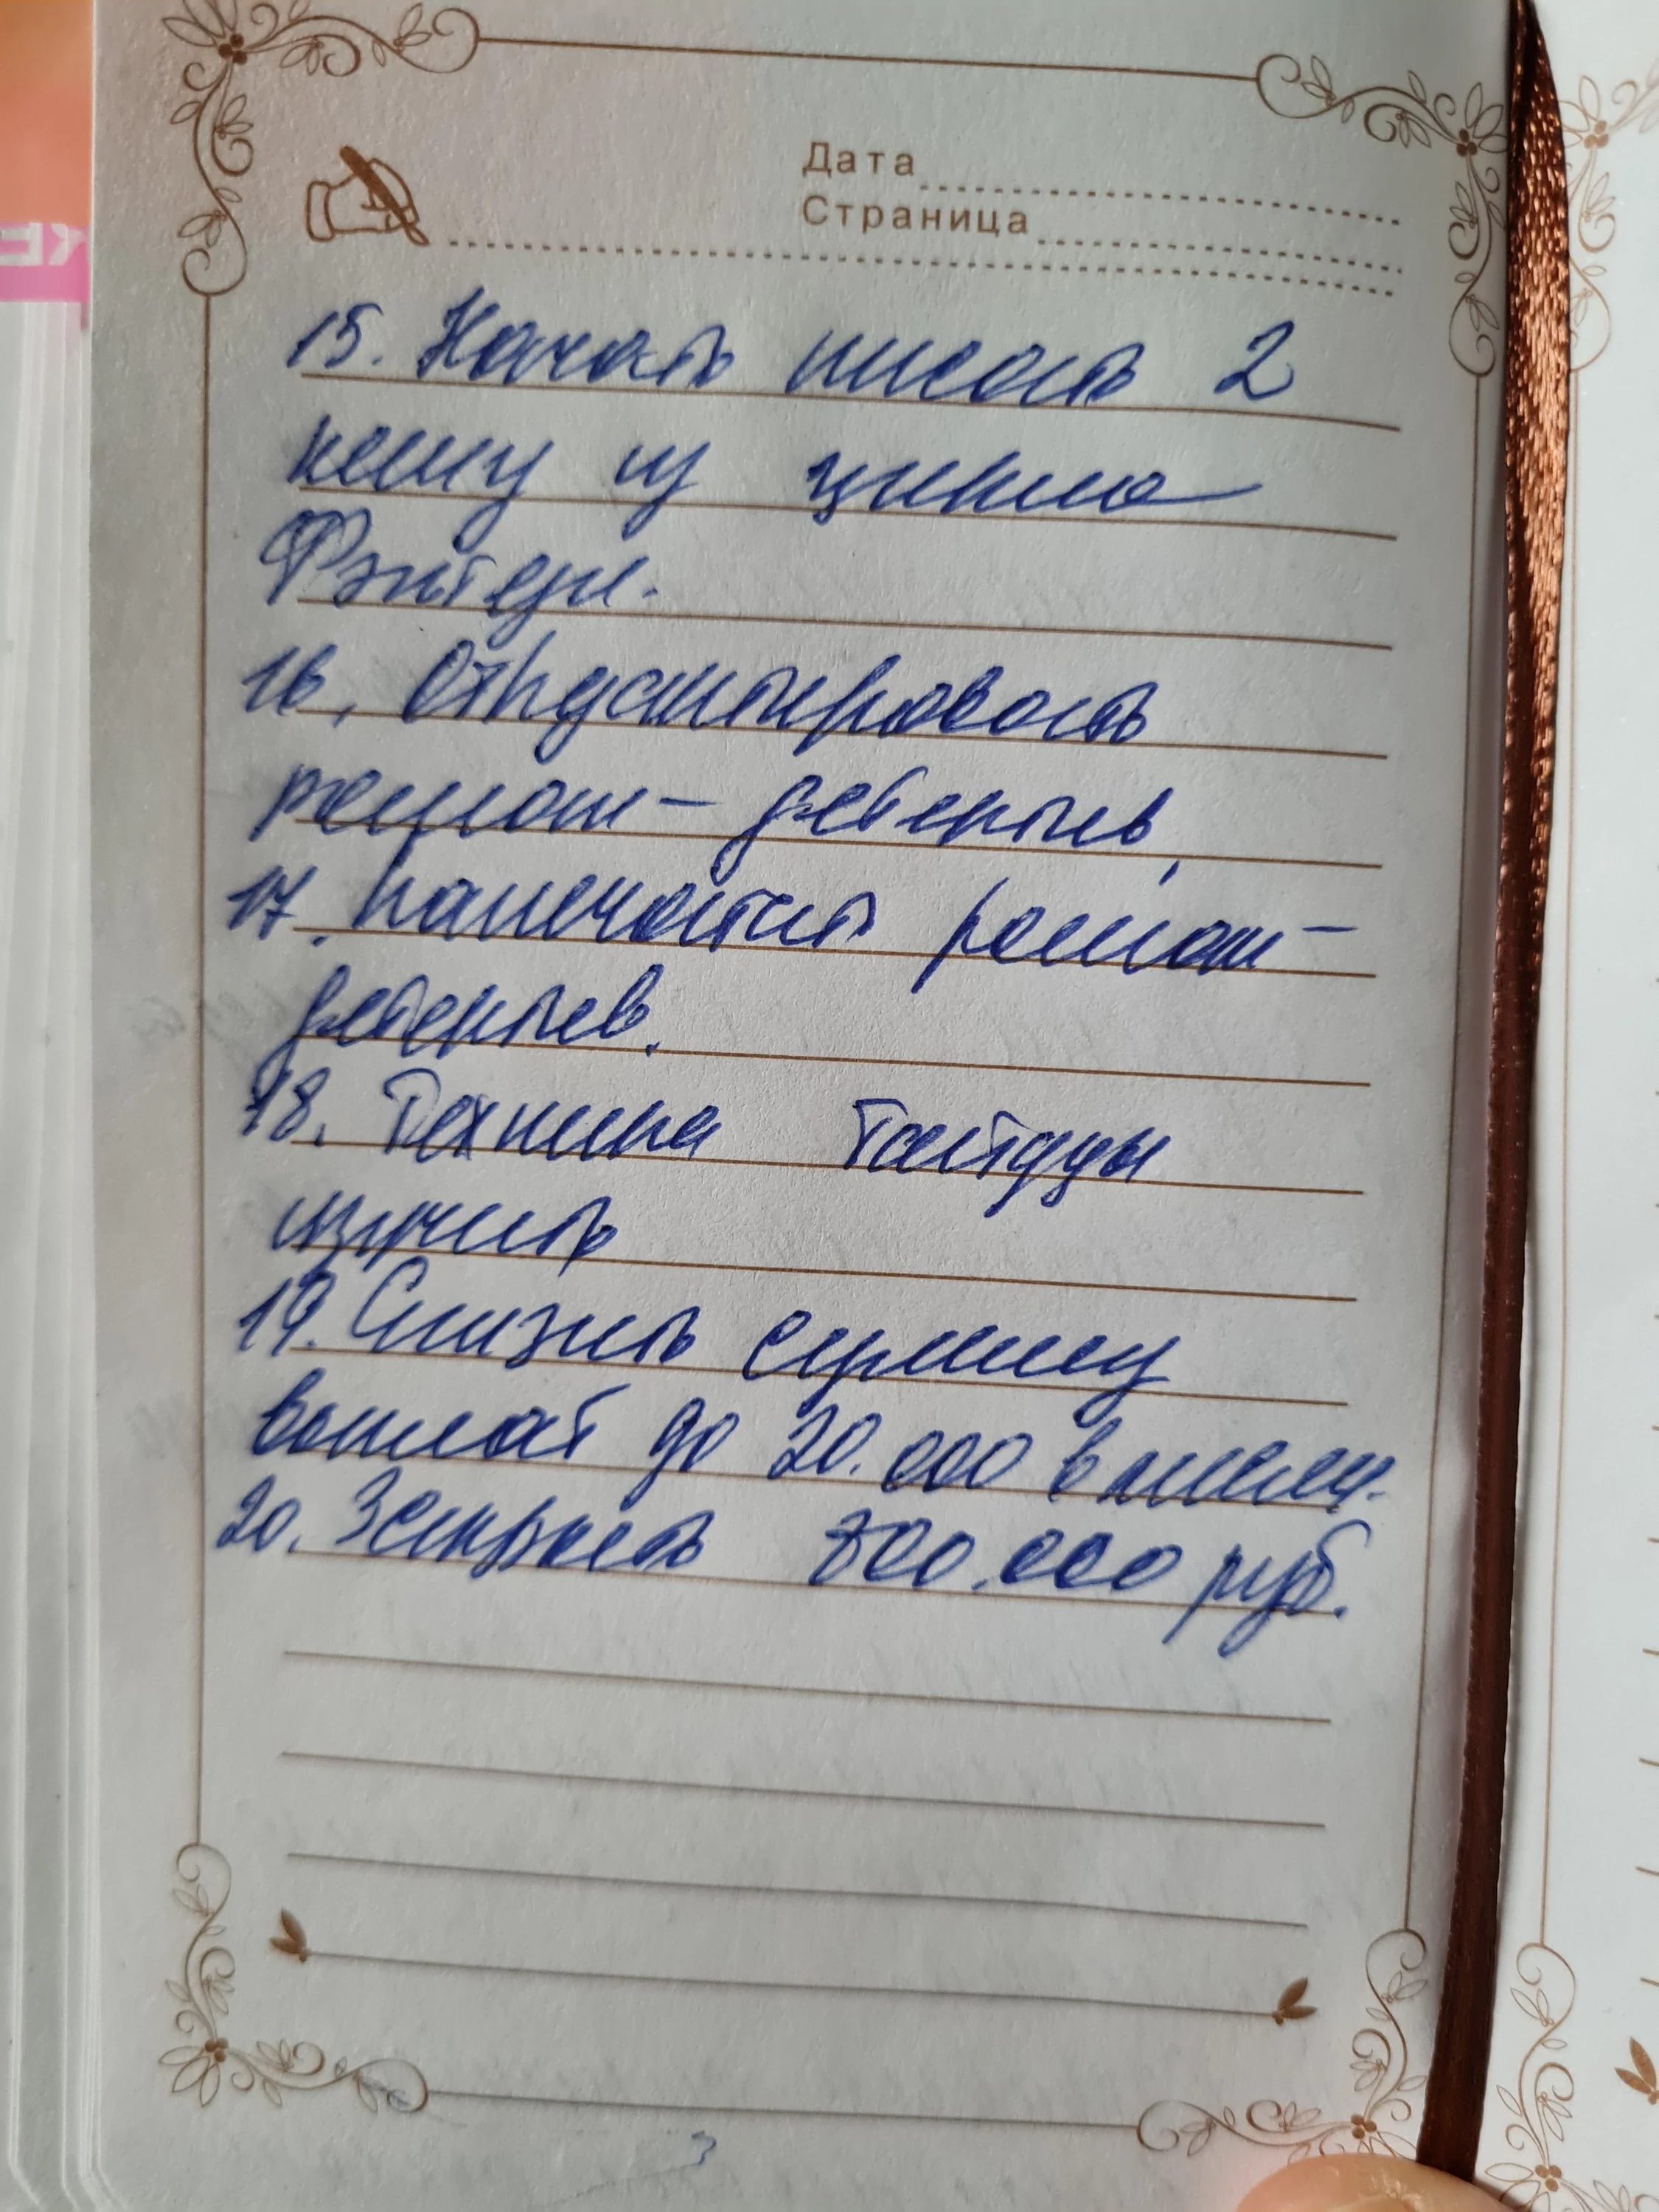 Дата
Страница
15. Начать писать 2
книгу из цикла
Фэнтези.
16. Отредактировать
роман - детектив
17. Напечатать роман -
детектив.
18. Техника
изучить
19. Снизить сумму
выплат до 20.000 в месяц.
20. Закрыть 800.000 руб.